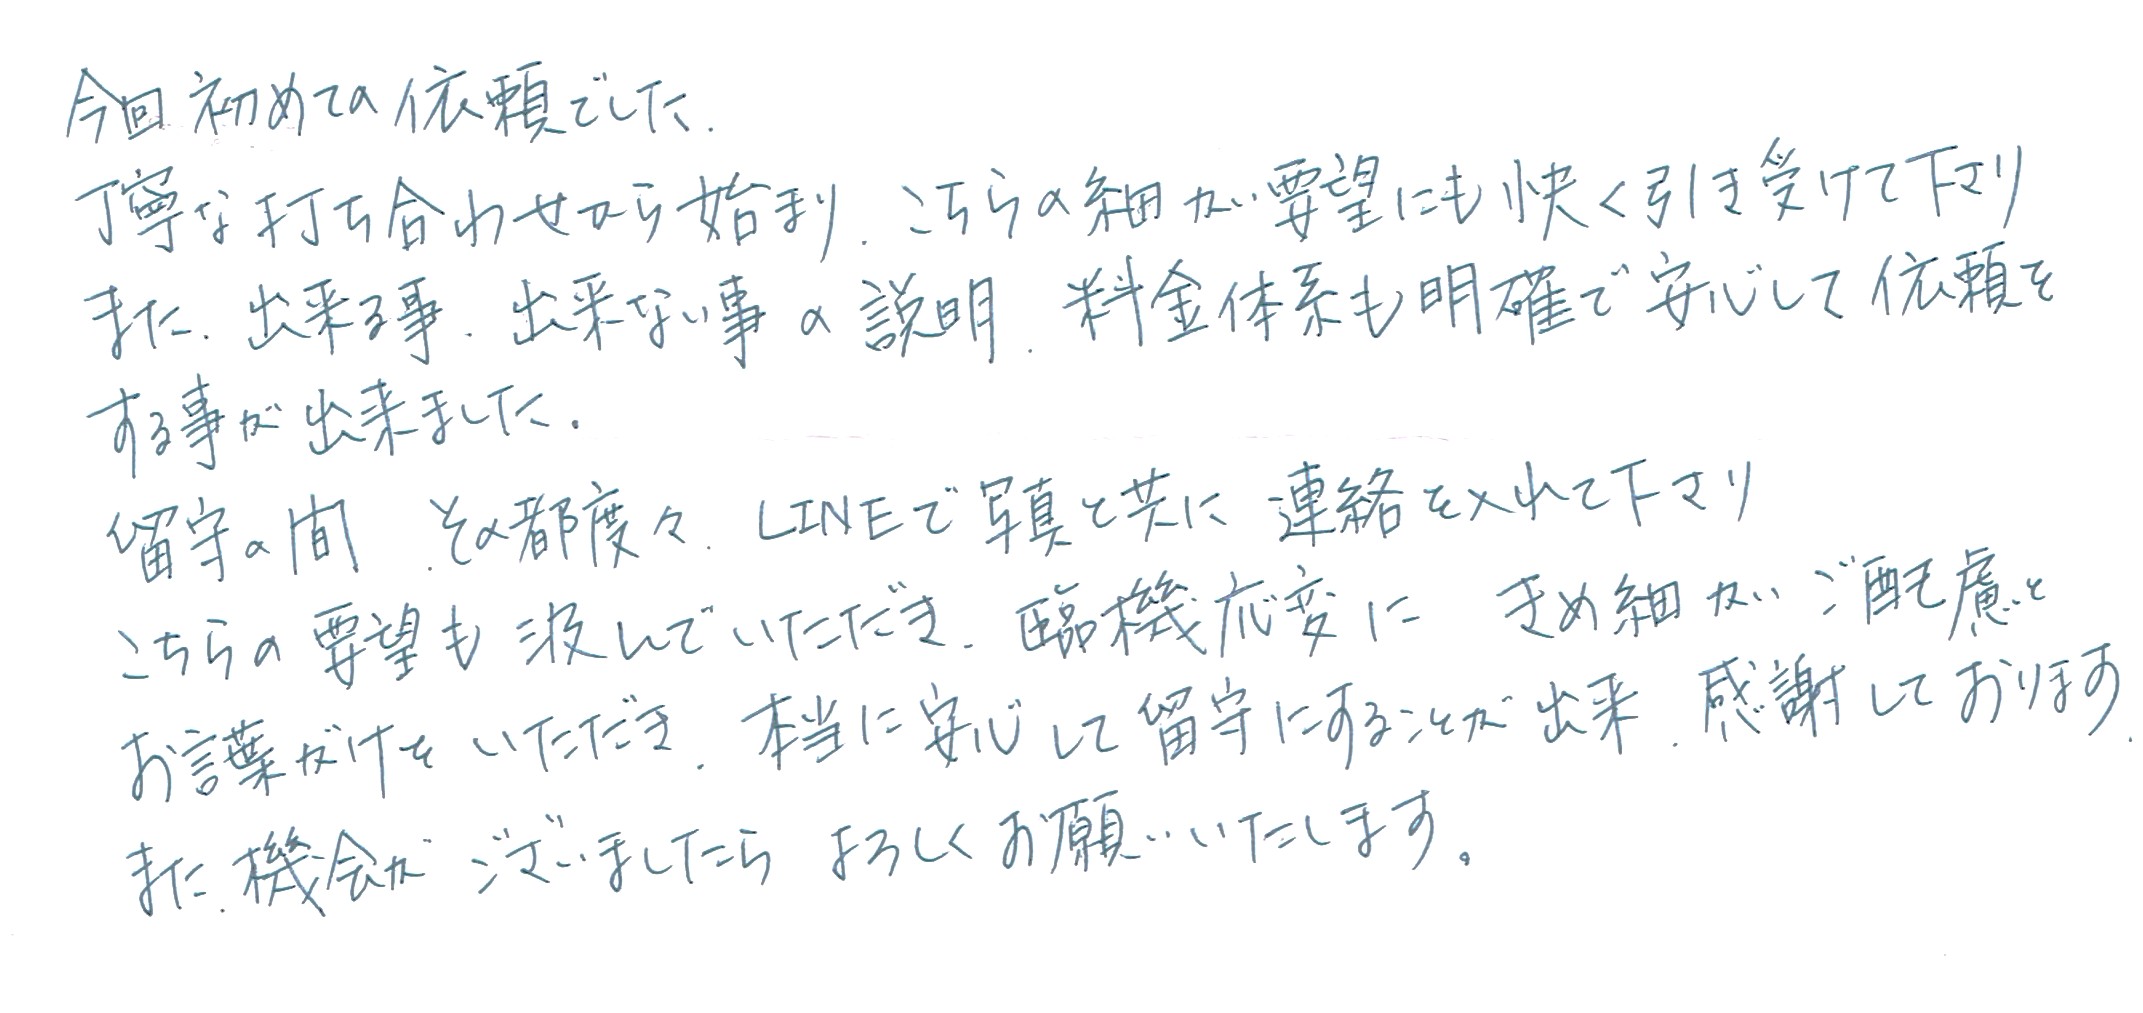 今回初めての依頼でした.
丁寧な打ち合わせから始まり、こちらの細かい要望にも快く引き受けて下さり
また、出来る事、出来ない事の説明、料金体系も明確で安心して依頼を
する事が出来ました.
留守の間、その都度々、LINEで写真と共に連絡を入れて下さり
こちらの要望も汲んでいただき、臨機応変に きめ細かいご配慮と
お言葉がけをいただき、本当に安心して留守にすることが出来、感謝しております.
また、機会がございましたらよろしくお願いいたします。